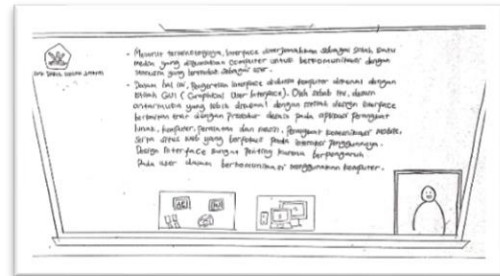 - Menurut terminologinya, Interface diterjemahkan sebagai salah satu
media yang digunakan computer untuk berkomunikasi dengan
manusia yang bertindak sebagai user.
- Dalam hal ini, Pengertian Interface didalam komputer dikenal dengan
istilah GUI ( Graphical User Interface). Oleh sebab itu, desain
antarmuka yang lebih dikenal dengan istilah design interface
berkaitan erat dengan prosedur desain pada aplikasi perangkat
lunak, komputer, peralatan dan mesin, perangkat komunikasi mobile,
serta situs web yang berfokus pada interaksi penggunanya.
Design Interface sangat Penting karena berpengaruh
Pada user dalam berkomunikasi menggunakan komputer.